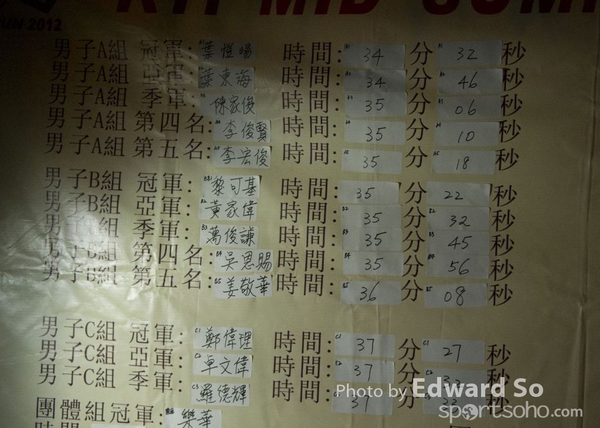 KTF MID SUMM
RUN 2012
男子A組 冠軍: 葉愷暘 時間: 34 分 32 秒
男子A組 亞軍: 葉東海 時間: 34 分 46 秒
男子A組 季軍: 陳家俊 時間: 35 分 06 秒
男子A組 第四名: 李俊賢 時間: 35 分 10 秒
男子A組 第五名: 李宏俊 時間: 35 分 18 秒
男子B組 冠軍: 黎可基 時間: 35 分 22 秒
男子B組 亞軍: 黃家偉 時間: 35 分 32 秒
男子B組 季軍: 萬俊謙 時間: 35 分 45 秒
男子B組 第四名: 吳恩賜 時間: 35 分 56 秒
男子B組 第五名: 姜敬華 時間: 36 分 08 秒
男子C組 冠軍: 鄭偉理 時間: 37 分 27 秒
男子C組 亞軍: 卓文偉 時間: 37 分 秒
男子C組 季軍: 羅德輝 時間: 37 分 秒
團體組冠軍: 樂華
時間
Photo by Edward So
sportsoho.com